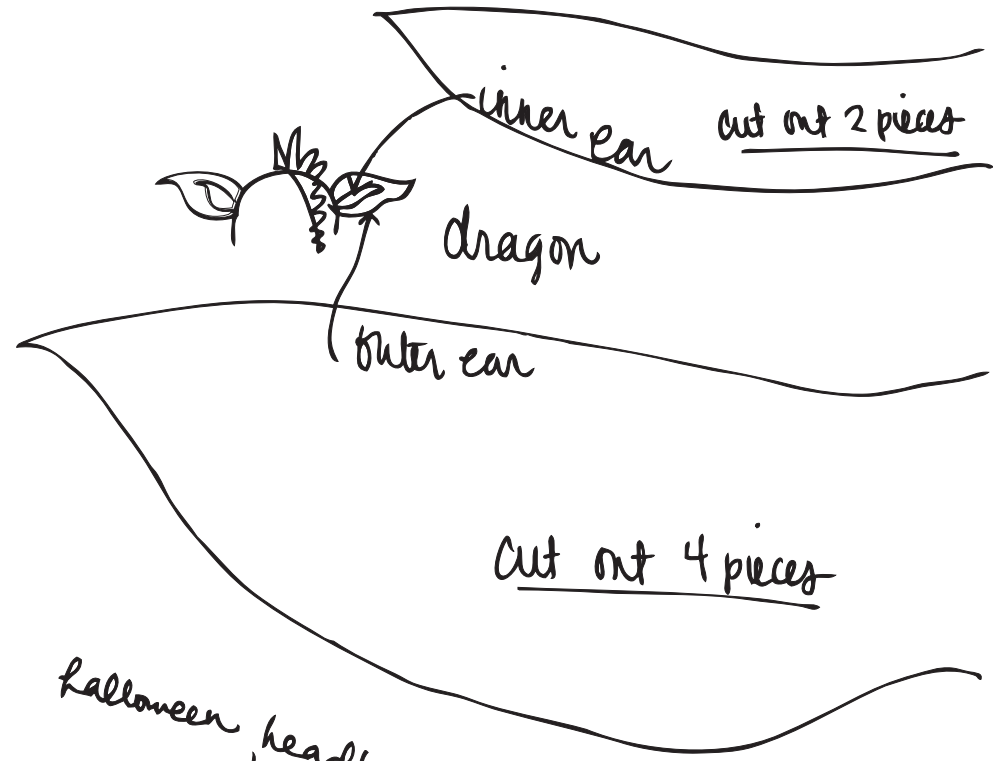 inner ear
cut out 2 pieces
dragon
outer ear
cut out 4 pieces
halloween